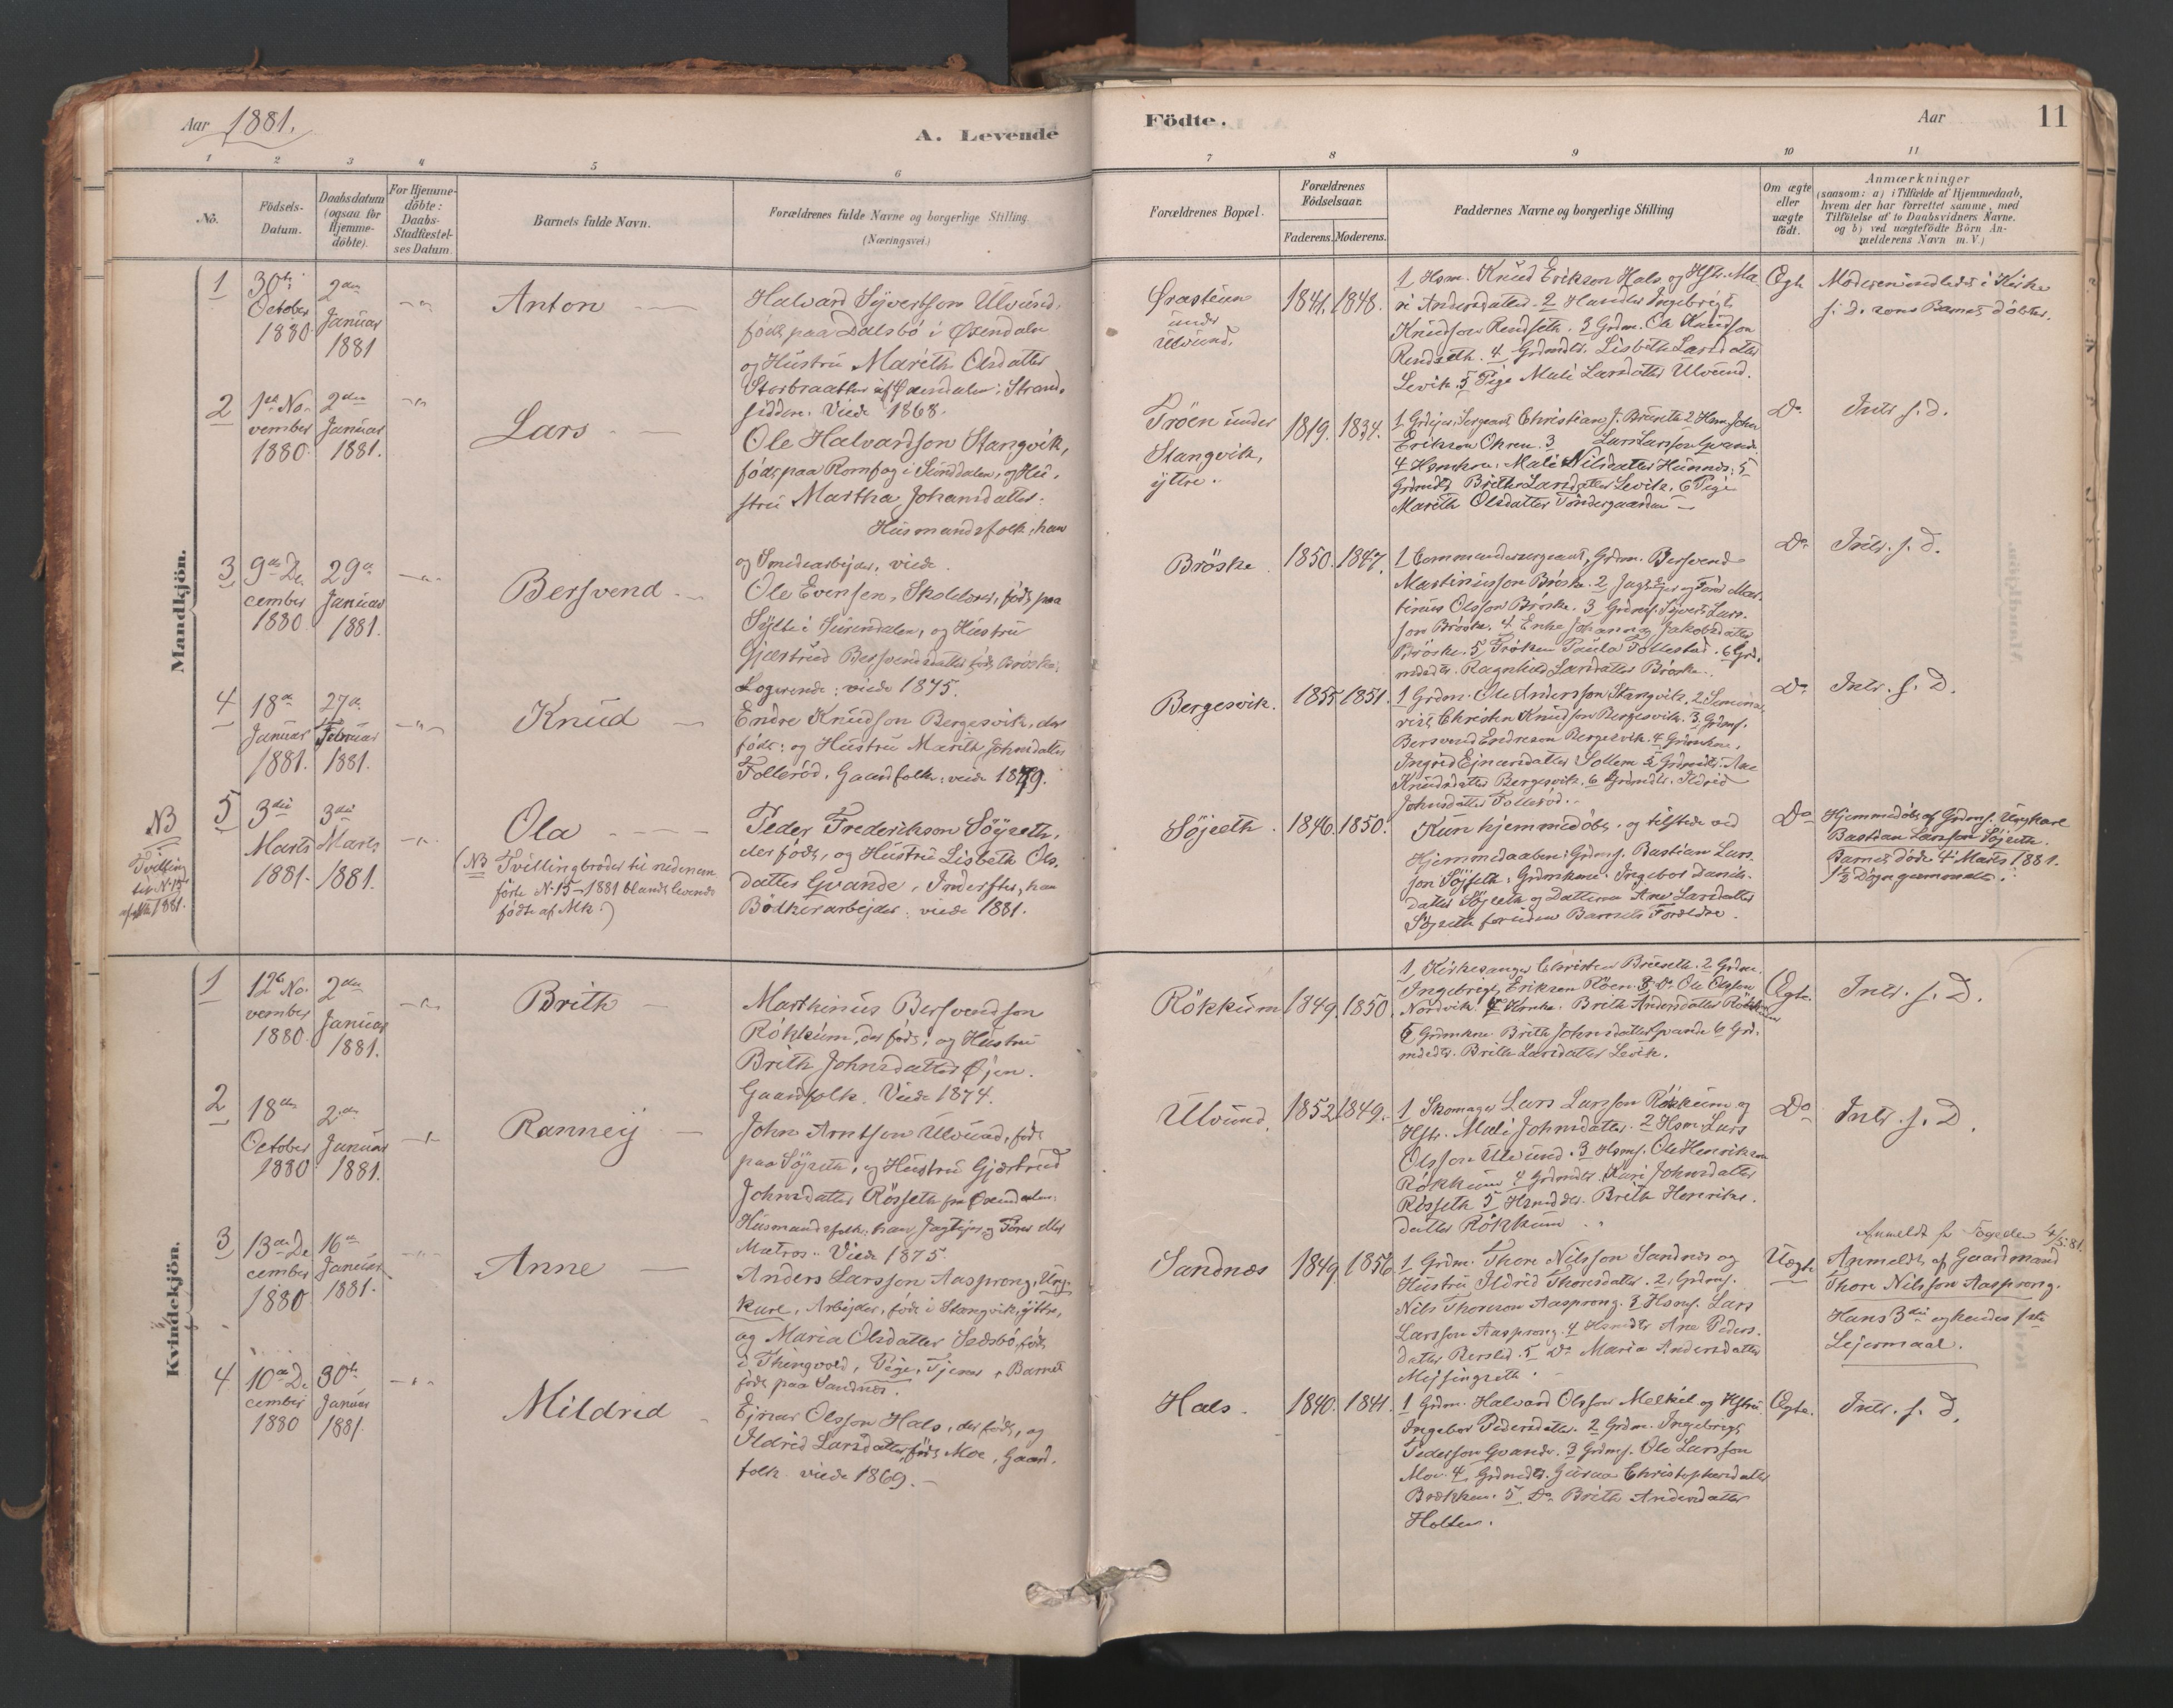 Aar 1881.
A. Levende
Födte.
Aar
11
1 2 3 4 5 6 7 8 9 10 11
No.
Födsels-
Datum.
Daabsdatum
(ogsaa for
Hjemme-
döbte).
For Hjemme-
döbte:
Daabs-
Stadfæstel-
ses Datum.
Barnets fulde Navn.
Forældrenes fulde Navne og borgerlige Stilling
(Næringsvei.)
Forældrenes Bopæl.
Forældrenes
Födselsaar.
Faderens. Moderens.
Faddernes Navne og borgerlige Stilling
Om ægte
eller
uægte
födt.
Anmærkninger
(saasom: a) i Tilfælde af Hjemmedaab,
hvem der har forrettet samme, med
Tilföielse af to Daabsvidners Navne.
og b) ved uægtefödte Börn An-
melderens Navn m. V.)
Mandkjön.
1
30te
October
1880
2den
Januar
1881
Anton
Halvard Syvertson Ulvund,
född paa Dalsbö i Öxendalen
og Hustru Marith Olsdatter
Storbraatten af Öxendalen: Strand-
sidder. Viede 1868.
under
Ulvund.
1841. 1848.
1 Hsm. Knud Erikson Hals og Hstr. Ma-
ri Andersdatter 2 Ingebrigt
Knudson Rendseth. 3 Grdm. Ole Knudson
Rendseth. 4 Grdmdtr. Lisbeth Larsdatter
Levik. 5 Pige Mali Larsdatter Ulvund.
Ægte
Moderen indledet i Kirke
s. d. som Barnet döbtes.
2
1ste No-
vember
1880
2den
Januar
1881.
Lars
Ole Halvardson Stangvik,
född paa Romfog i Sunddalen, og Hu-
stru Martha Johansdatter.
Husmandsfolk, han
og Smedearbejder, viede
Tröen under
Stangvik,
yttre.
1819. 1834.
1 Sergeant Christian J. Bruseth 2 Hsm. John
Erikson 3 Lars Larsson Qvande
4 Hsmkone Mali Nilsdatter Hunnes. 5
Grdmdtr Brith Larsdatter Levik. 6 Pige
Marith Olsdatter Töndergaarden
Do
Intr. s. d.
3
9de De-
cember
1880
29de
Januar
1881.
Bersvend
Ole Evensen, Skolelærer, född paa
Sylte i Surendalen, og Hustru
Gjertrud Bersvendsdatter född Bröske.
Logerende: viede 1875.
Bröske
1850. 1847.
1 Commandersergeant, Grdm. Bersvend
Martinusson Bröske. 2 Jagtejer og Förer Mar-
tinus Olsson Bröske. 3 Grdmsf. Syvert Lars-
son Bröske. 4 Enke Johanna Jakobsdatter
Bröske. 5 Fröken Paula Follestad. 6 Grd-
mdtr. Ragnhild Larsdatter Bröske.
Do
Intr. s. d.
4
18de
Januar
1881.
27de
Februar
1881.
Knud
Endre Knudson Bergesvik, der
födt: og Hustru Marith Johnsdatter
Folleröd, Gaardfolk: viede 1879.
Bergesvik.
1855. 1851.
1 Grdm. Ole Andersson Stangvik, 2 Semina-
rist Christen Knudson Bergesvik. 3 Grdmsf.
Bersvend Endreson Bergesvik. 4 Grdmkone
Ingrid Ejnarsdatter Sollem 5 Grdmdtr. Ane
Knudsdatter Bergesvik. 6 Grdmdtr. Ildrid
Johnsdatter Folleröd.
Do
Intr. s. D.
NB
Tvilling
til No 15
af 1881.
5
3die
Marts
1881.
3die
Marts
1881.
Ola
(NB Tvillingbroder til nedenan-
förte No 15 - 1881 blandt levende
födte af Mk.)
Peder Frederikson Söyseth,
der födt, og Hustru Lisbeth Ols-
datter Qvande, Inderster, han
Bödkerarbejder: viede 1881.
Söjseth.
1846. 1850.
Kun hjemmedöbt, og tilstede ved
Hjemmedaaben: Grdmsf. Bastian Lars-
son Söjseth, Grdmkone Ingebor Daniels-
datter Söjseth og Datteren Ane Larsdatter
Söjseth foruden Barnets Foreldre.
Do
Hjemmedöbt af Grdmsf. Ungkarl
Bastian Larsson Söjseth.
Barnet döde 4de Marts 1881.
1½ Dögn gammelt.
Kvindekjön.
1
12te No-
vember
1880
2den
Januar
1881.
Brith
Marthinus Bersvendson
Rökkum, der födt, og Hustru
Brith Johnsdatter Öjen.
Gaardfolk. Viede 1874.
Rökkum
1849. 1850.
1 Kirkesanger Christen Bruseth. 2 Grdm.
Ingebrigt Erikson Röen. 3 Do Ole Olsson
Nordvik. 4 Hsmke. Brith Andersdatter Rökkum
5 Grdmkone Brith Johnsdatter Qvande 6 Grd-
mdtr. Brith Larsdatter Levik.
Ægte.
Intr. s. D.
2
18de
October
1880
2den
Januar
1881.
Ranney
John Arntsen Ulvund, födt
paa Söjseth, og Hustru Gjertrud
Johnsdatter Rösseth fra Öxendalen.
Husmandsfolk, han Jagtejer og Förer eller
Matros. Viede 1875.
Ulvund.
1852. 1849.
1 Skomager Lars Larsson Rökkum og
Hstr. Mali Johnsdatter. 2 Hsm. Lars
Olsson Ulvund. 3 Hsmsf. Ole Henrikson
Rökkum 4 Grdmdtr. Kari Johnsdatter
Rösseth 5 Hsmdtr. Brith Henriks-
datter Rökkum.
Do
Intr. s. D.
3
13de De-
cember
1880
16de
Januar
1881.
Anne
Anders Larsson Aasprong, Ung-
karl, Arbejder, födt i Stangvik, yttre,
og Maria Olsdatter Sedsbö, födt
i Thingvold, Pige, Tjener, Barnet
födt paa Sandnes.
Sandnes
1849. 1856
1 Grdm. Thore Nilsson Sandnes og
Hustru Ildrid Thoresdatter. 2 Grdmsf.
Nils Thoreson Aasprong. 3 Hsmsf. Lars
Larsson Aasprong. 4 Hsmdtr Ane Peders-
datter 5 Do Maria Andersdatter
Ugte
Anmeldt for Fogden 4/5. 81.
Anmeldt af Gaardmand
Thore Nilsson Aasprong.
Hans 3die og hendes 1ste
Lejermaal.
4
10de De-
cember
1880
30te
Januar
1881.
Mildrid
Ejnar Olsson Hals, der födt, og
Ildrid Larsdatter, födt Moe, Gaard-
folk. viede 1869.
Hals.
1840. 1841.
1 Grdm. Halvard Olsson Melkild og Hstru.
Ingebor Pedersdatter. 2 Grdm. Ingebrigt
Pederson Qvande. 3 Grdmsf. Ole Larsson
Moe. 4 Grdmdtr. Guroe Christophersdatter
Brekken. 5 Do Brith Andersdatter
Holten.
Ægte.
Intr. s. D.